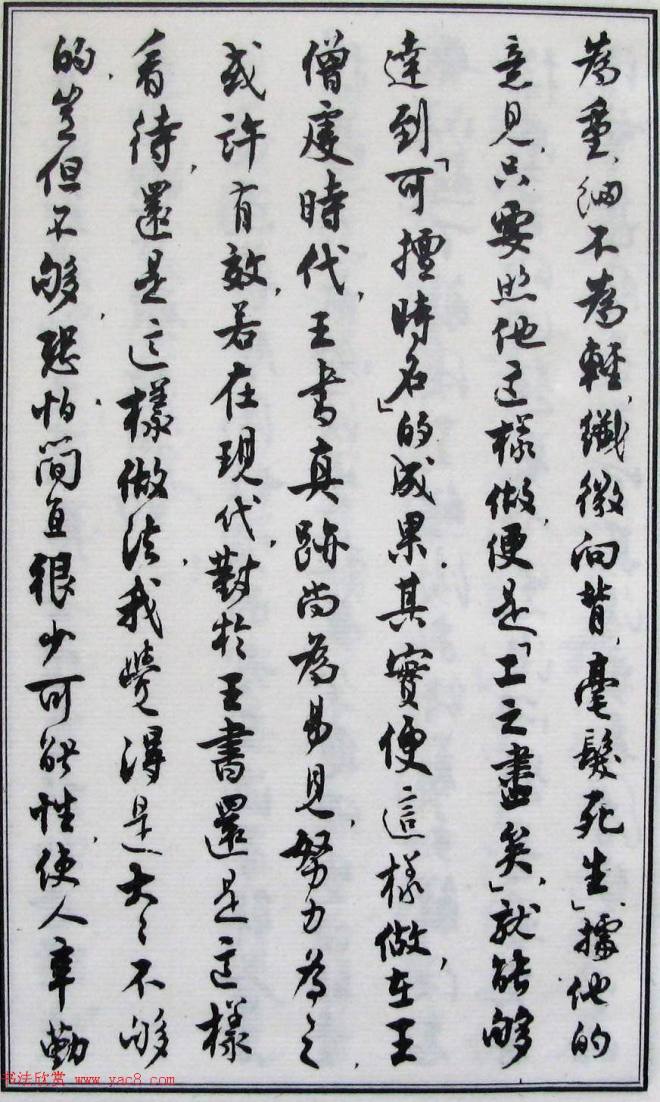 為重,細不為輕,纖微向背,毫髮死生」,據他的
意見,只要照他這樣做,便是「工之盡矣」,就能夠
達到「可擅時名」的成果。其實便這樣做,在王
僧虔時代,王書真跡尚為易見,努力為之,
或許有效,若在現代,對於王書還是這樣
看待,還是這樣做法,我覺得是大大不夠
的,豈但不夠,恐怕簡直很少可能性,使人辛勤
书法欣赏 www.yac8.com